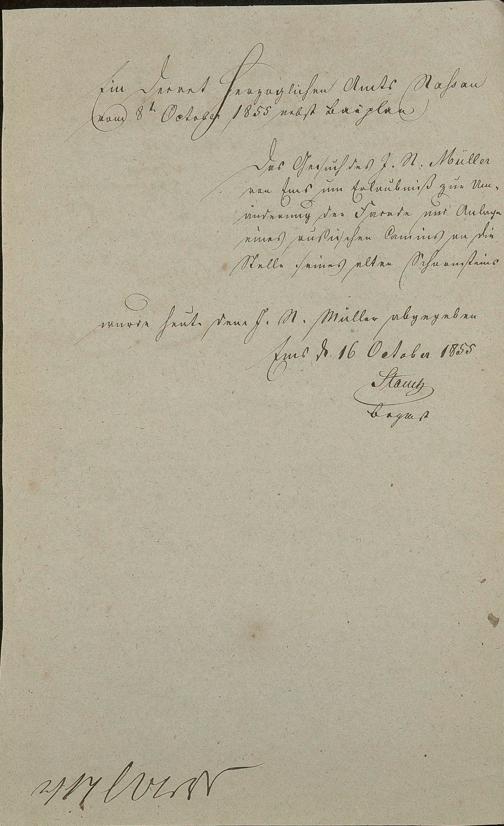 Ein Decret Herzoglichen Amts Nassau
vom 8t October 1855 nebst Bauplan
Das Gesuch des J. N. Müller
von Ems um Erlaubniß zur Um-
änderung der Facade und Anlage
eines russischen Camins an die
Stelle seines alten Schornsteins
wurde heute dem J. N. Müller abgegeben
Ems d. 16 October 1855
Stautz
Bgmst